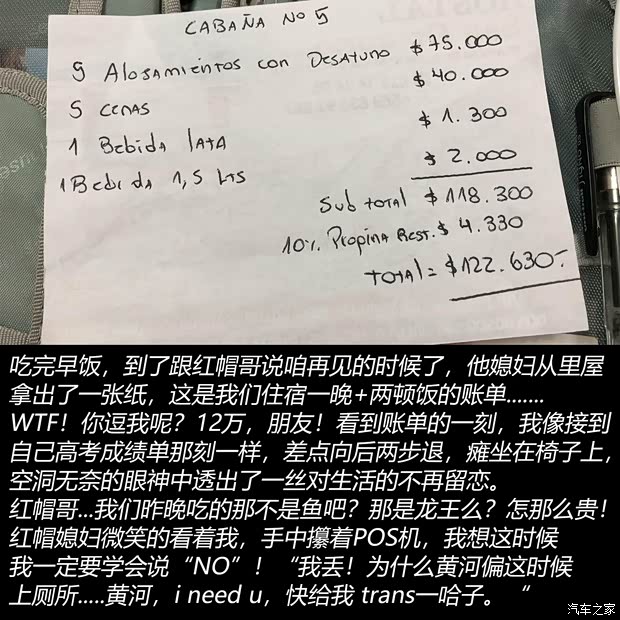 CABAÑA Nº 5
5 ALOJAMIENTOS CON DESAYUNO $75.000
5 CENAS $40.000
1 Bebida lATA $1.300
1 Bebida 1,5 lts $2.000
Sub total $118.300
10% Propina Rest. $4.330
TOTAL = $122.630.-
吃完早饭，到了跟红帽哥说咱再见的时候了，他媳妇从里屋
拿出了一张纸，这是我们住宿一晚+两顿饭的账单.......
WTF！你逗我呢？12万，朋友！看到账单的一刻，我像接到
自己高考成绩单那刻一样，差点向后两步退，瘫坐在椅子上，
空洞无奈的眼神中透出了一丝对生活的不再留恋。
红帽哥...我们昨晚吃的那不是鱼吧？那是龙王么？怎那么贵！
红帽媳妇微笑的看着我，手中攥着POS机，我想这时候
我一定要学会说“NO”！“我丢！为什么黄河偏这时候
上厕所.....黄河，i need u，快给我 trans一哈子。“
汽车之家